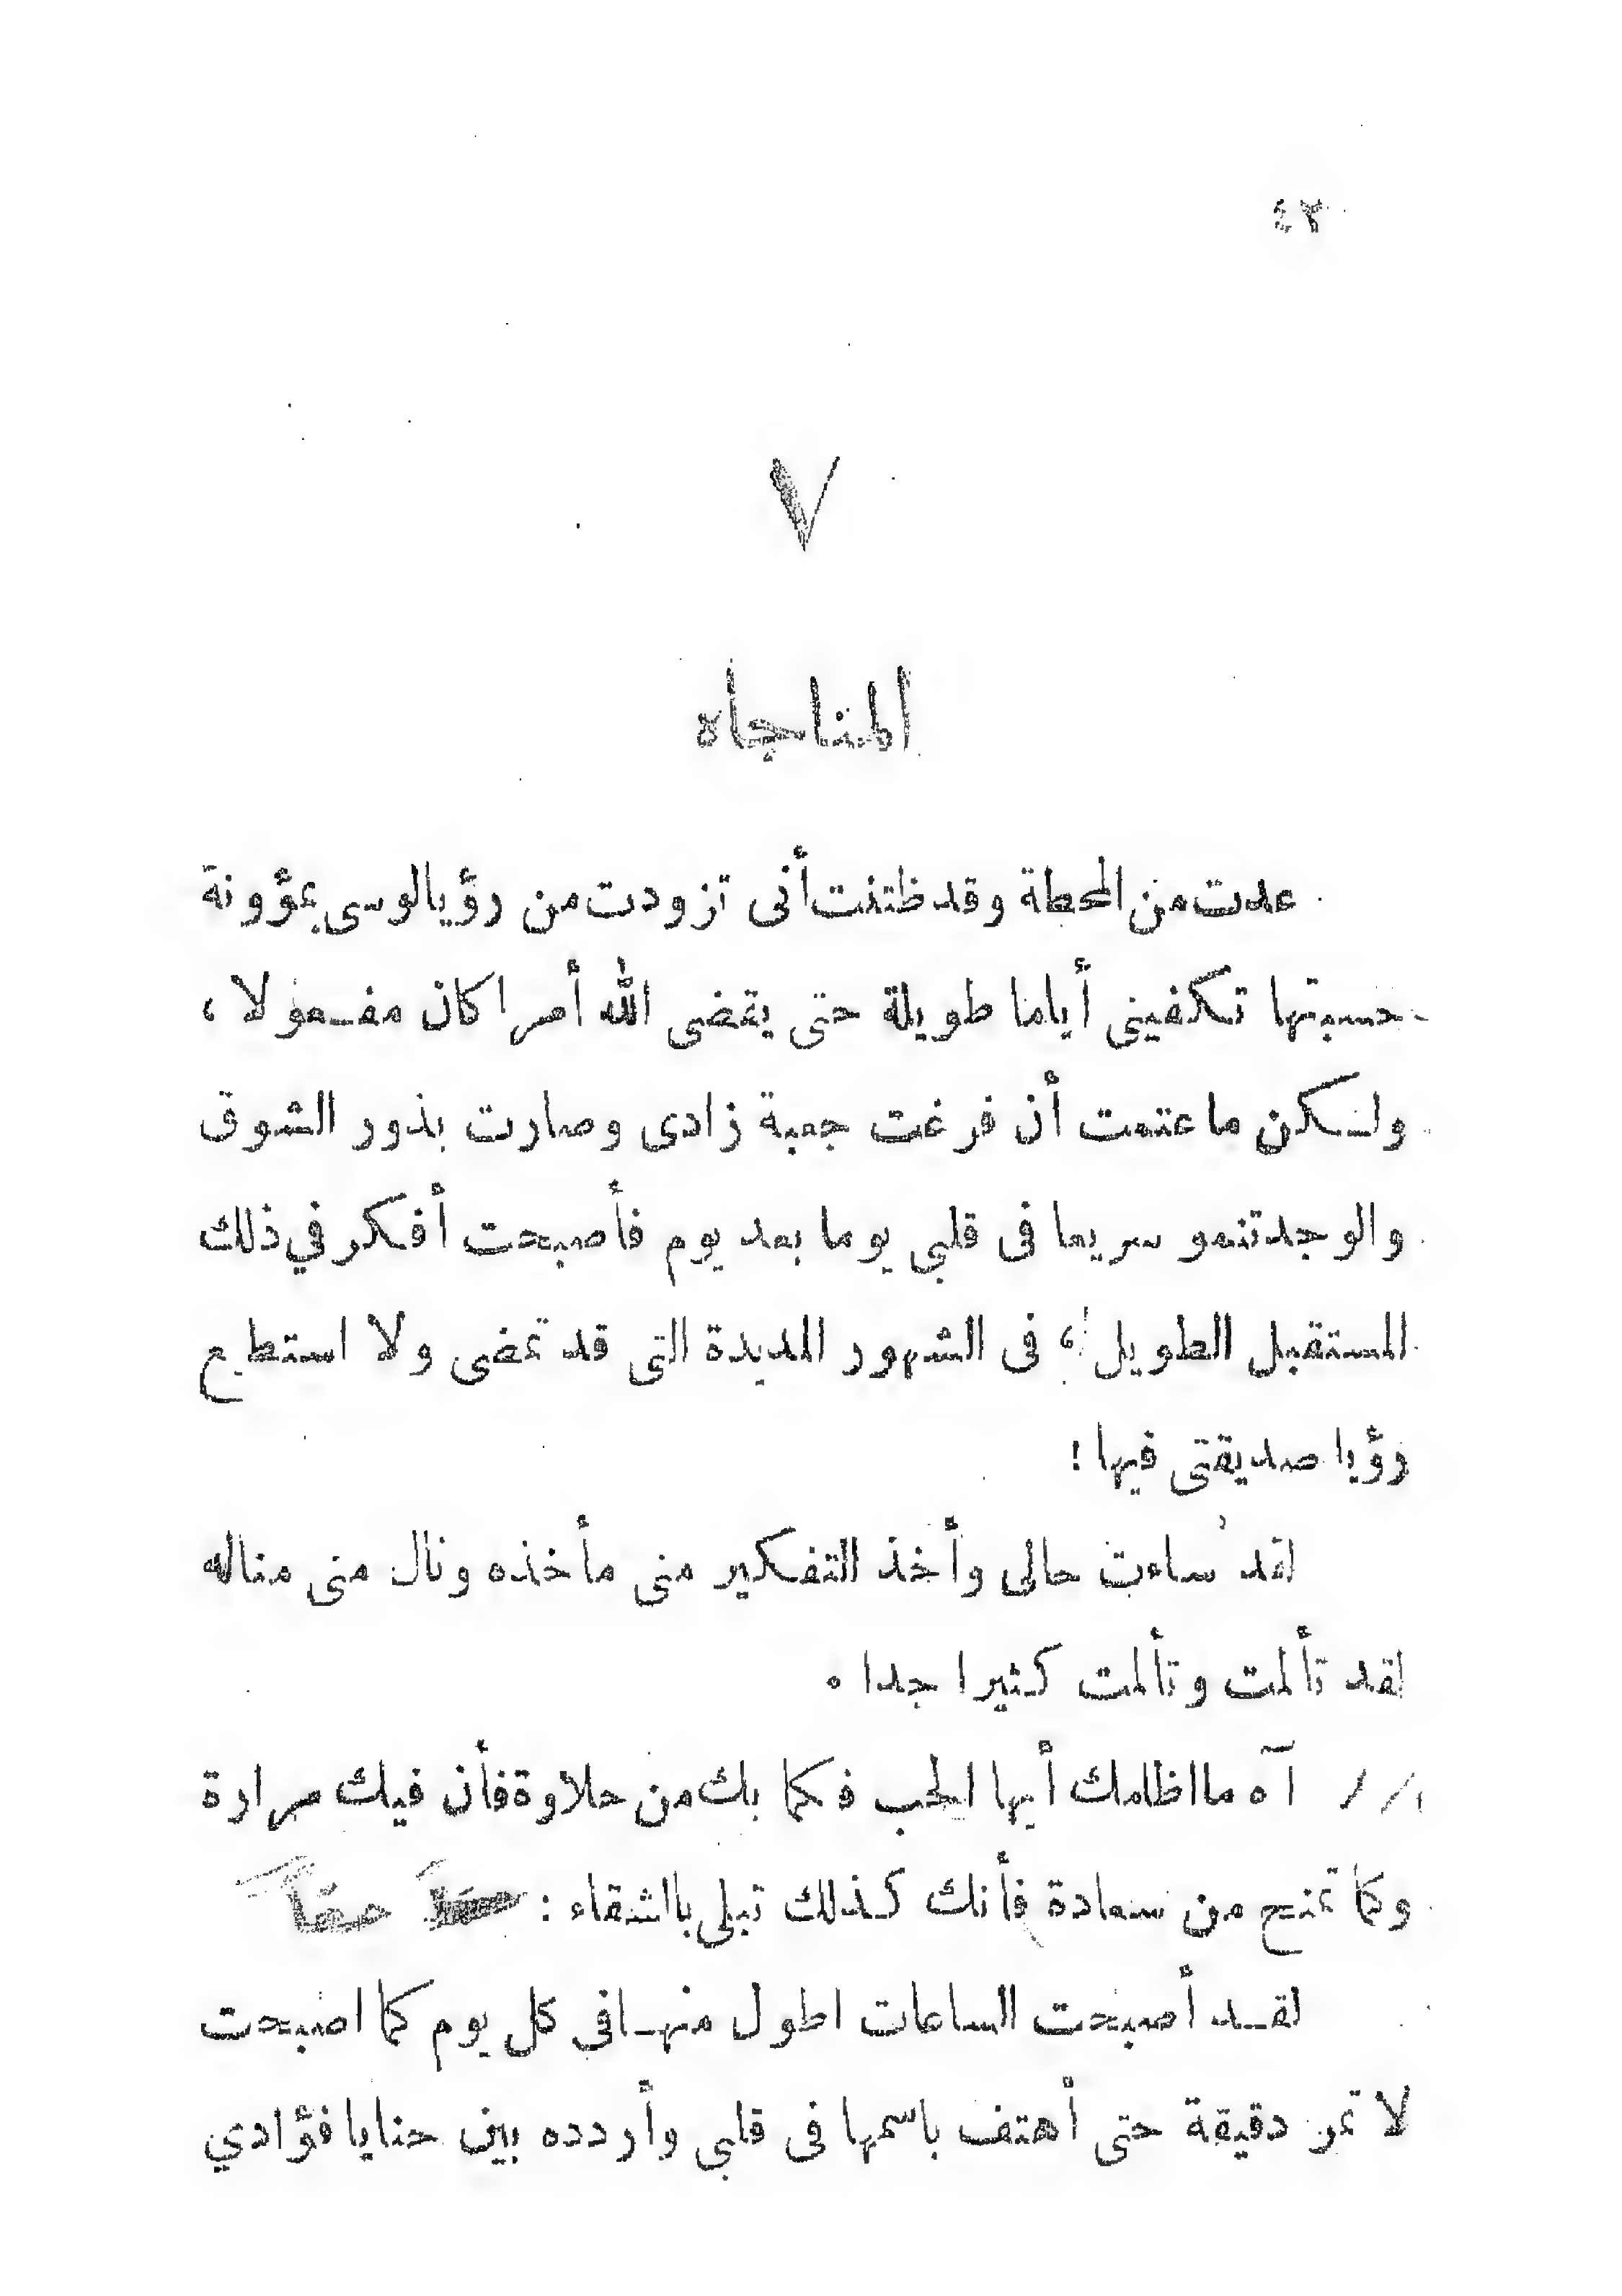 ٤٢
٧
المناجاه
عدت من المحطة وقد ظننت أنى تزودت من رؤيا لوسى بمؤونة
حسبتها تكفينى أياما طويلة حتى يقضى الله أمرا كان مفعولا ،
ولكن ما عتمت أن فرغت جعبة زادى وصارت بذور الشوق
والوجد تنمو سريعا فى قلبى يوما بعد يوم فأصبحت أفكر في ذلك
المستقبل الطويل ، فى الشهور المديدة التى قد تمضى ولا استطيع
رؤيا صديقتى فيها !
لقد ساءت حالى وأخذ التفكير منى مأخذه ونال منى مناله
لقد تألمت وتألمت كثيرا جدا .
آه ما اظلمك أيها الحب فكما بك من حلاوة فأن فيك مرارة
وكما تمنح من سعادة فأنك كذلك تبلى باالشقاء : حقاً
لقد أصبحت الساعات اطول منها فى كل يوم كما اصبحت
لا تمر دقيقة حتى أهتف باسمها فى قلبى وأردده بين حنايا فؤادي